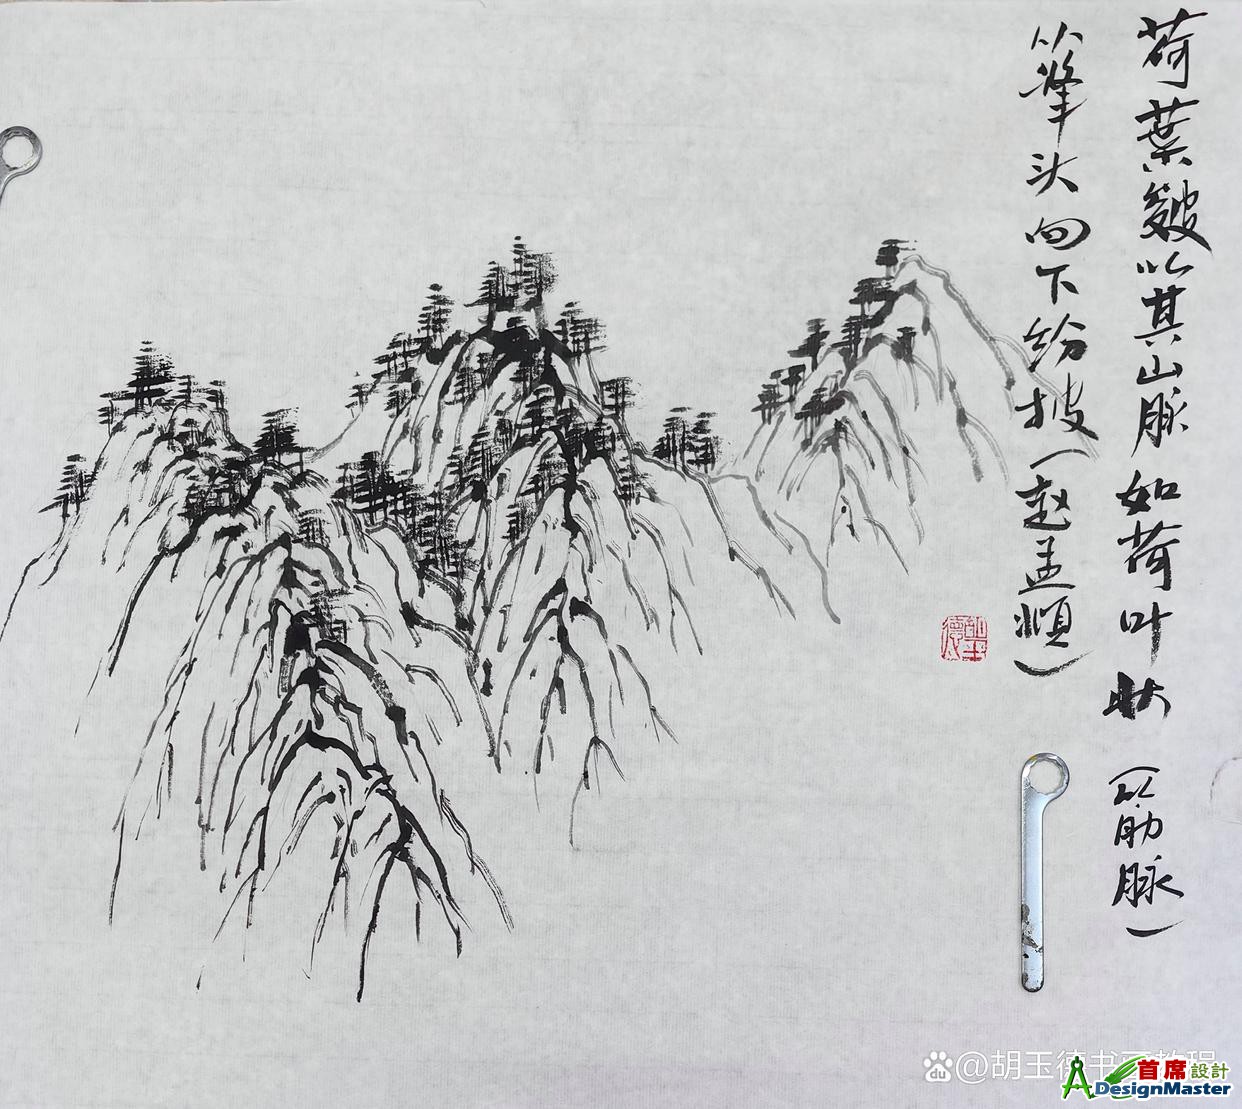 荷葉皴以其山脉如荷叶状（筋脉）
筆头向下纷披（赵孟頫）
du @胡玉德书画教程
首席設計
DesignMaster